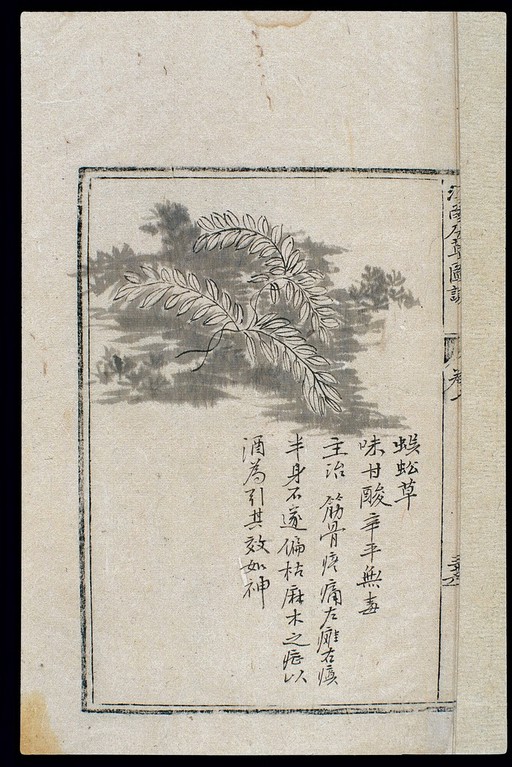 滇南本草圖說
蜈蚣草
味甘酸辛平無毒
主治 筋骨疼痛左癱右瘓
半身不遂偏枯麻木之症以
酒為引其效如神